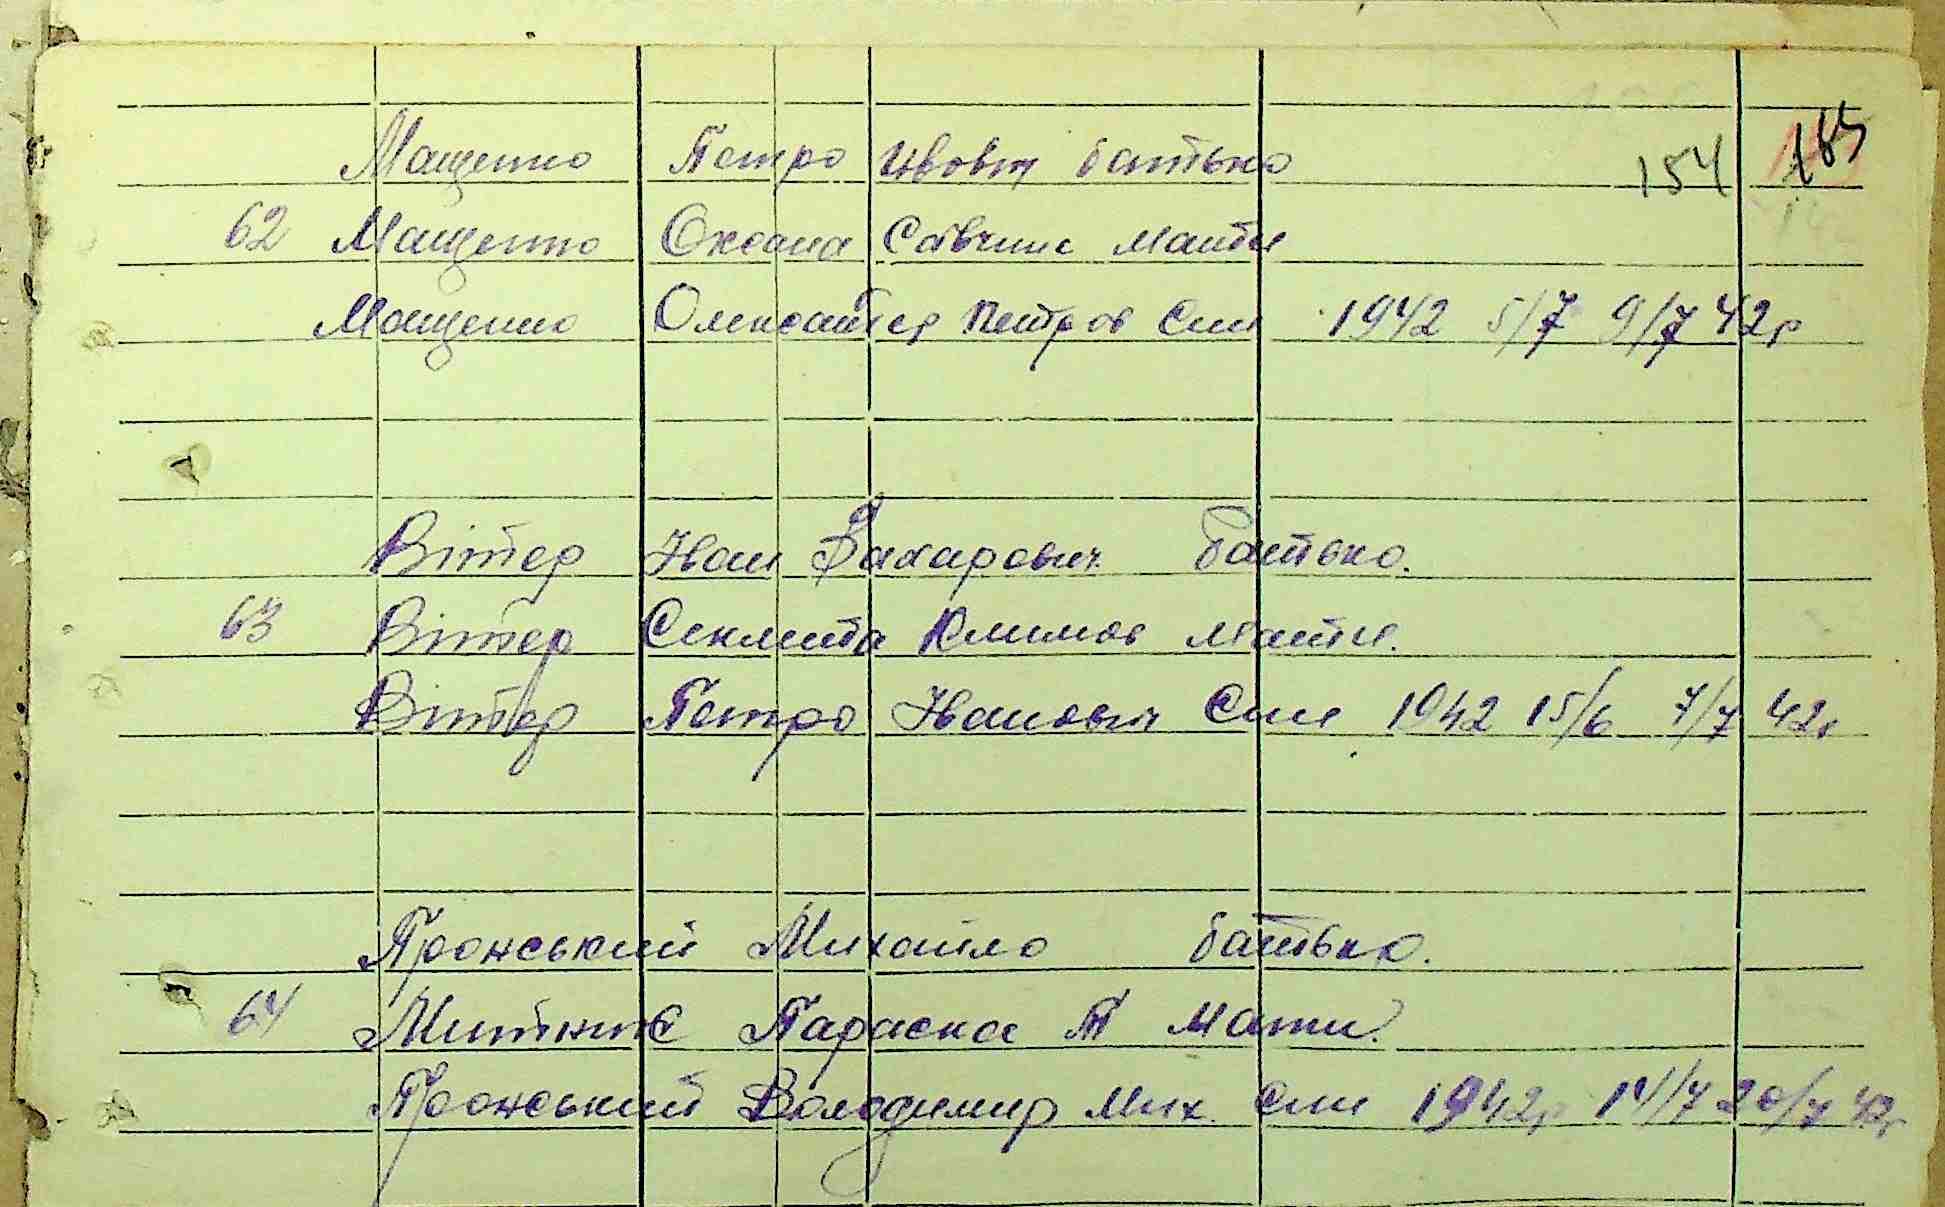 Мащенко Петро Ивовт батько 154 185
62 Мащенко Оксана Савчина Мати
Мащенко Олександр Петров Син 1942 5/7 9/7 42р
Вітер Иван Захарович батько.
63 Вітер Секлита Климов Мати.
Вітер Петро Иванович Син 1942 15/6 7/7 42г
Пронський Михайло батько.
64 Параска Т Мати.
Пронський Володимир Мих. Син 1942р 14/7 20/7 42г